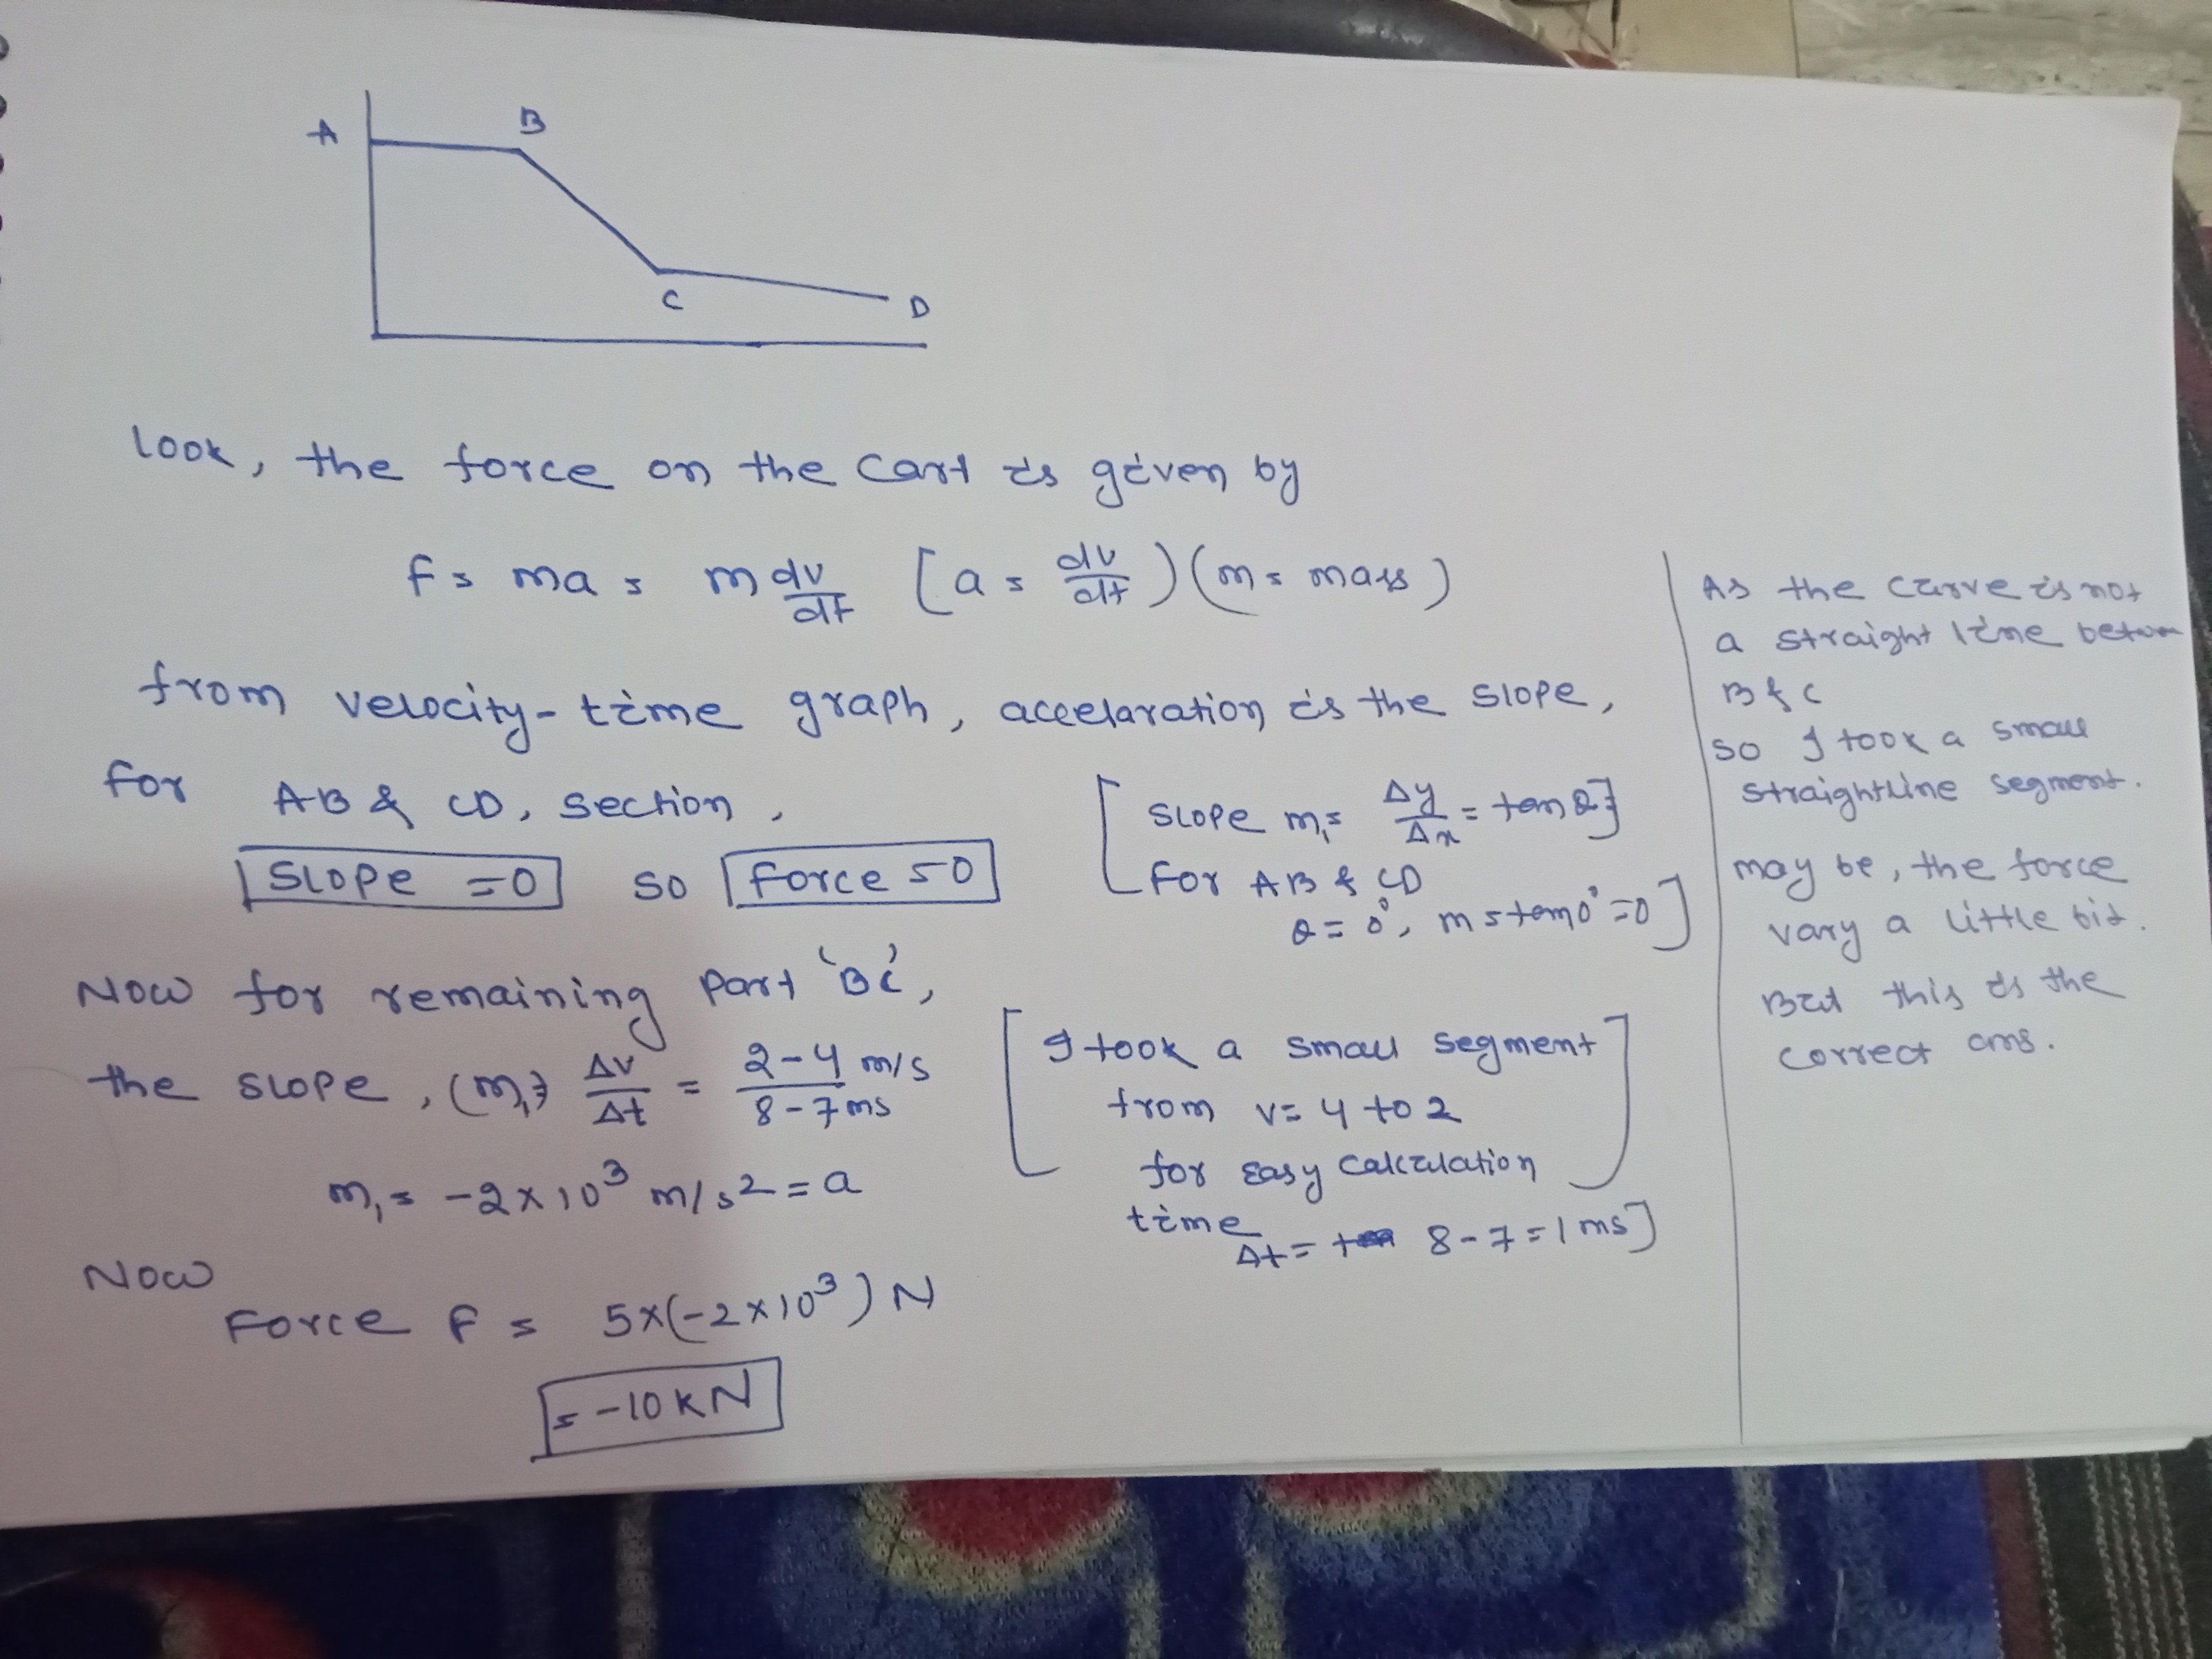 A
B
C
D
look, the force on the cart is given by
f = ma = m dv/dt [a = dv/dt) (m = mass)
from velocity-time graph, accelaration is the slope,
for AB & CD, section,
Slope = 0 so force = 0
[slope m₁ = Δy/Δx = tan θ]
for AB & CD
θ = 0°, m = tan0° = 0]
Now for remaining part 'BC',
the slope, (m₁) = Δv/Δt = 2-4 m/s / 8-7 ms
m₁ = -2×10³ m/s² = a
[I took a small segment
from v = 4 to 2
for easy calculation
time
Δt = 8-7 = 1 ms]
Now
Force f = 5×(-2×10³) N
= -10 kN
As the curve is not
a straight line between
B & C
so I took a small
straightline segment.
may be, the force
vary a little bit.
But this is the
correct ans.